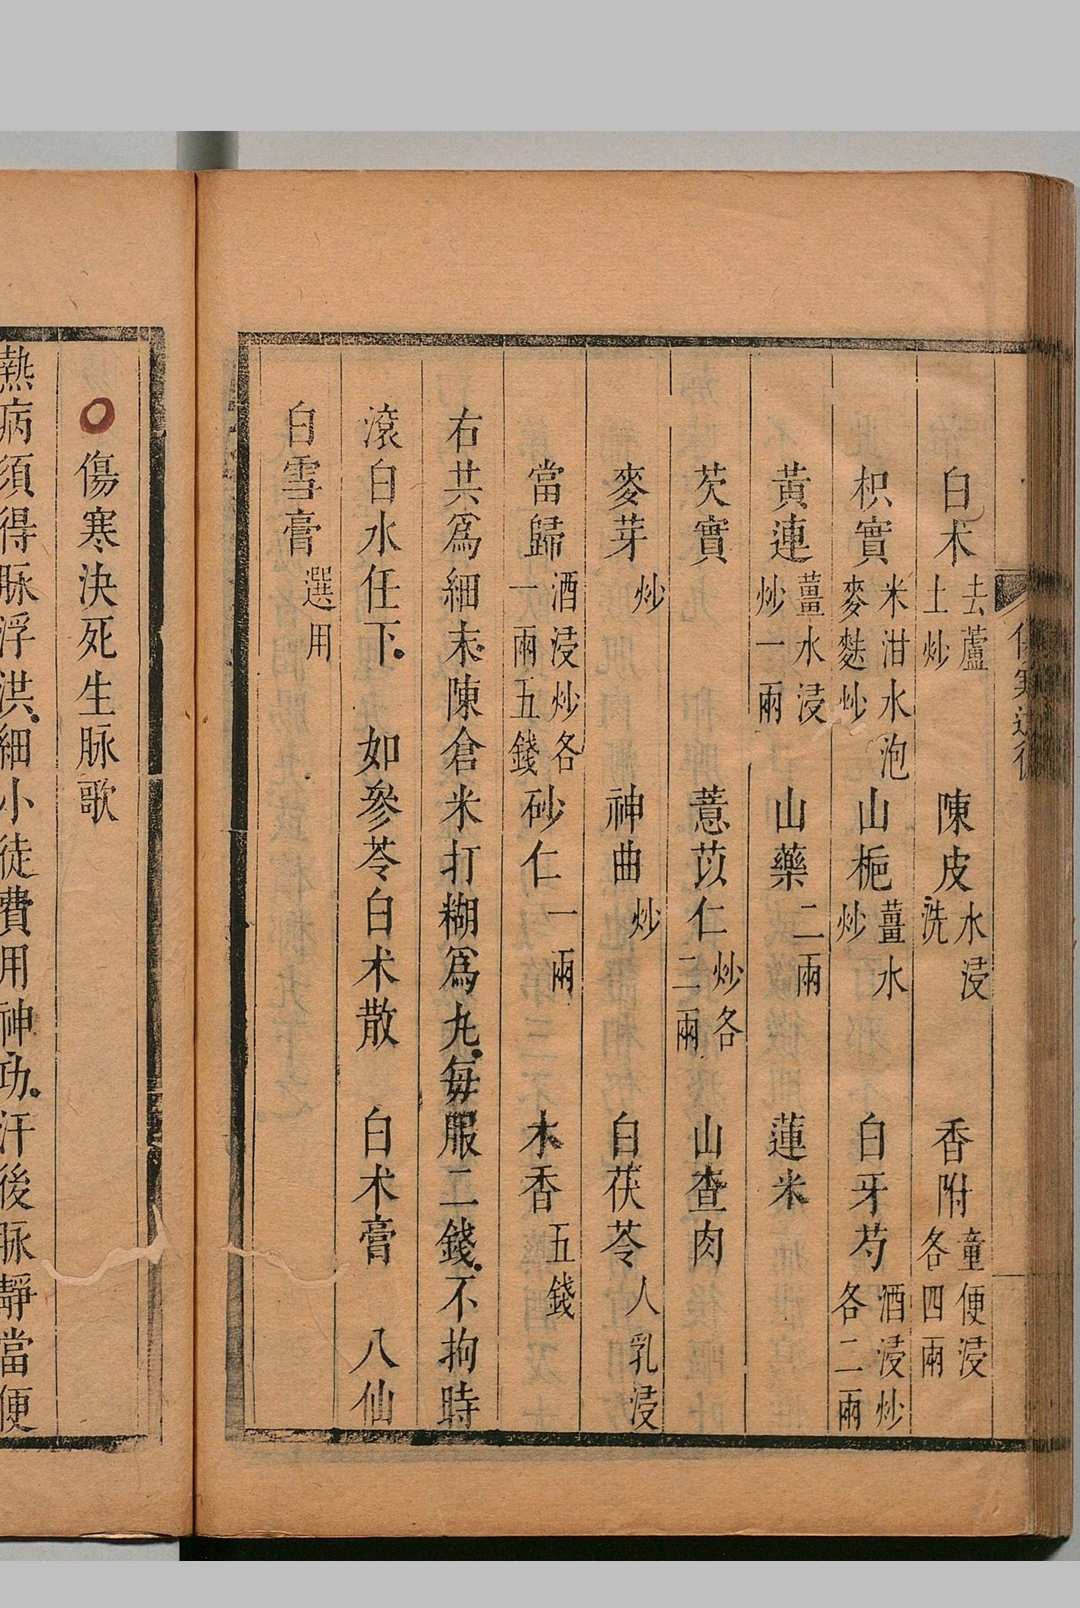 白朮去蘆土炒 陳皮水浸洗 香附童便浸各四兩
枳實米泔水泡麥麩炒 山梔薑水炒 白牙芍酒浸炒各二兩
黃連薑水浸炒一兩 山藥二兩 蓮米
芡實 薏苡仁炒各二兩 山查肉
麥芽炒 神曲炒 白茯苓人乳浸
當歸酒浸炒各一兩五錢 砂仁一兩 木香五錢
右共為細末陳倉米打糊為丸每服二錢不拘時
滾白水任下 如參苓白朮散 白朮膏 八仙
白雪膏選用
○傷寒決死生脉歌
熱病須得脉浮洪細小徒費用神功汗後脉靜當便